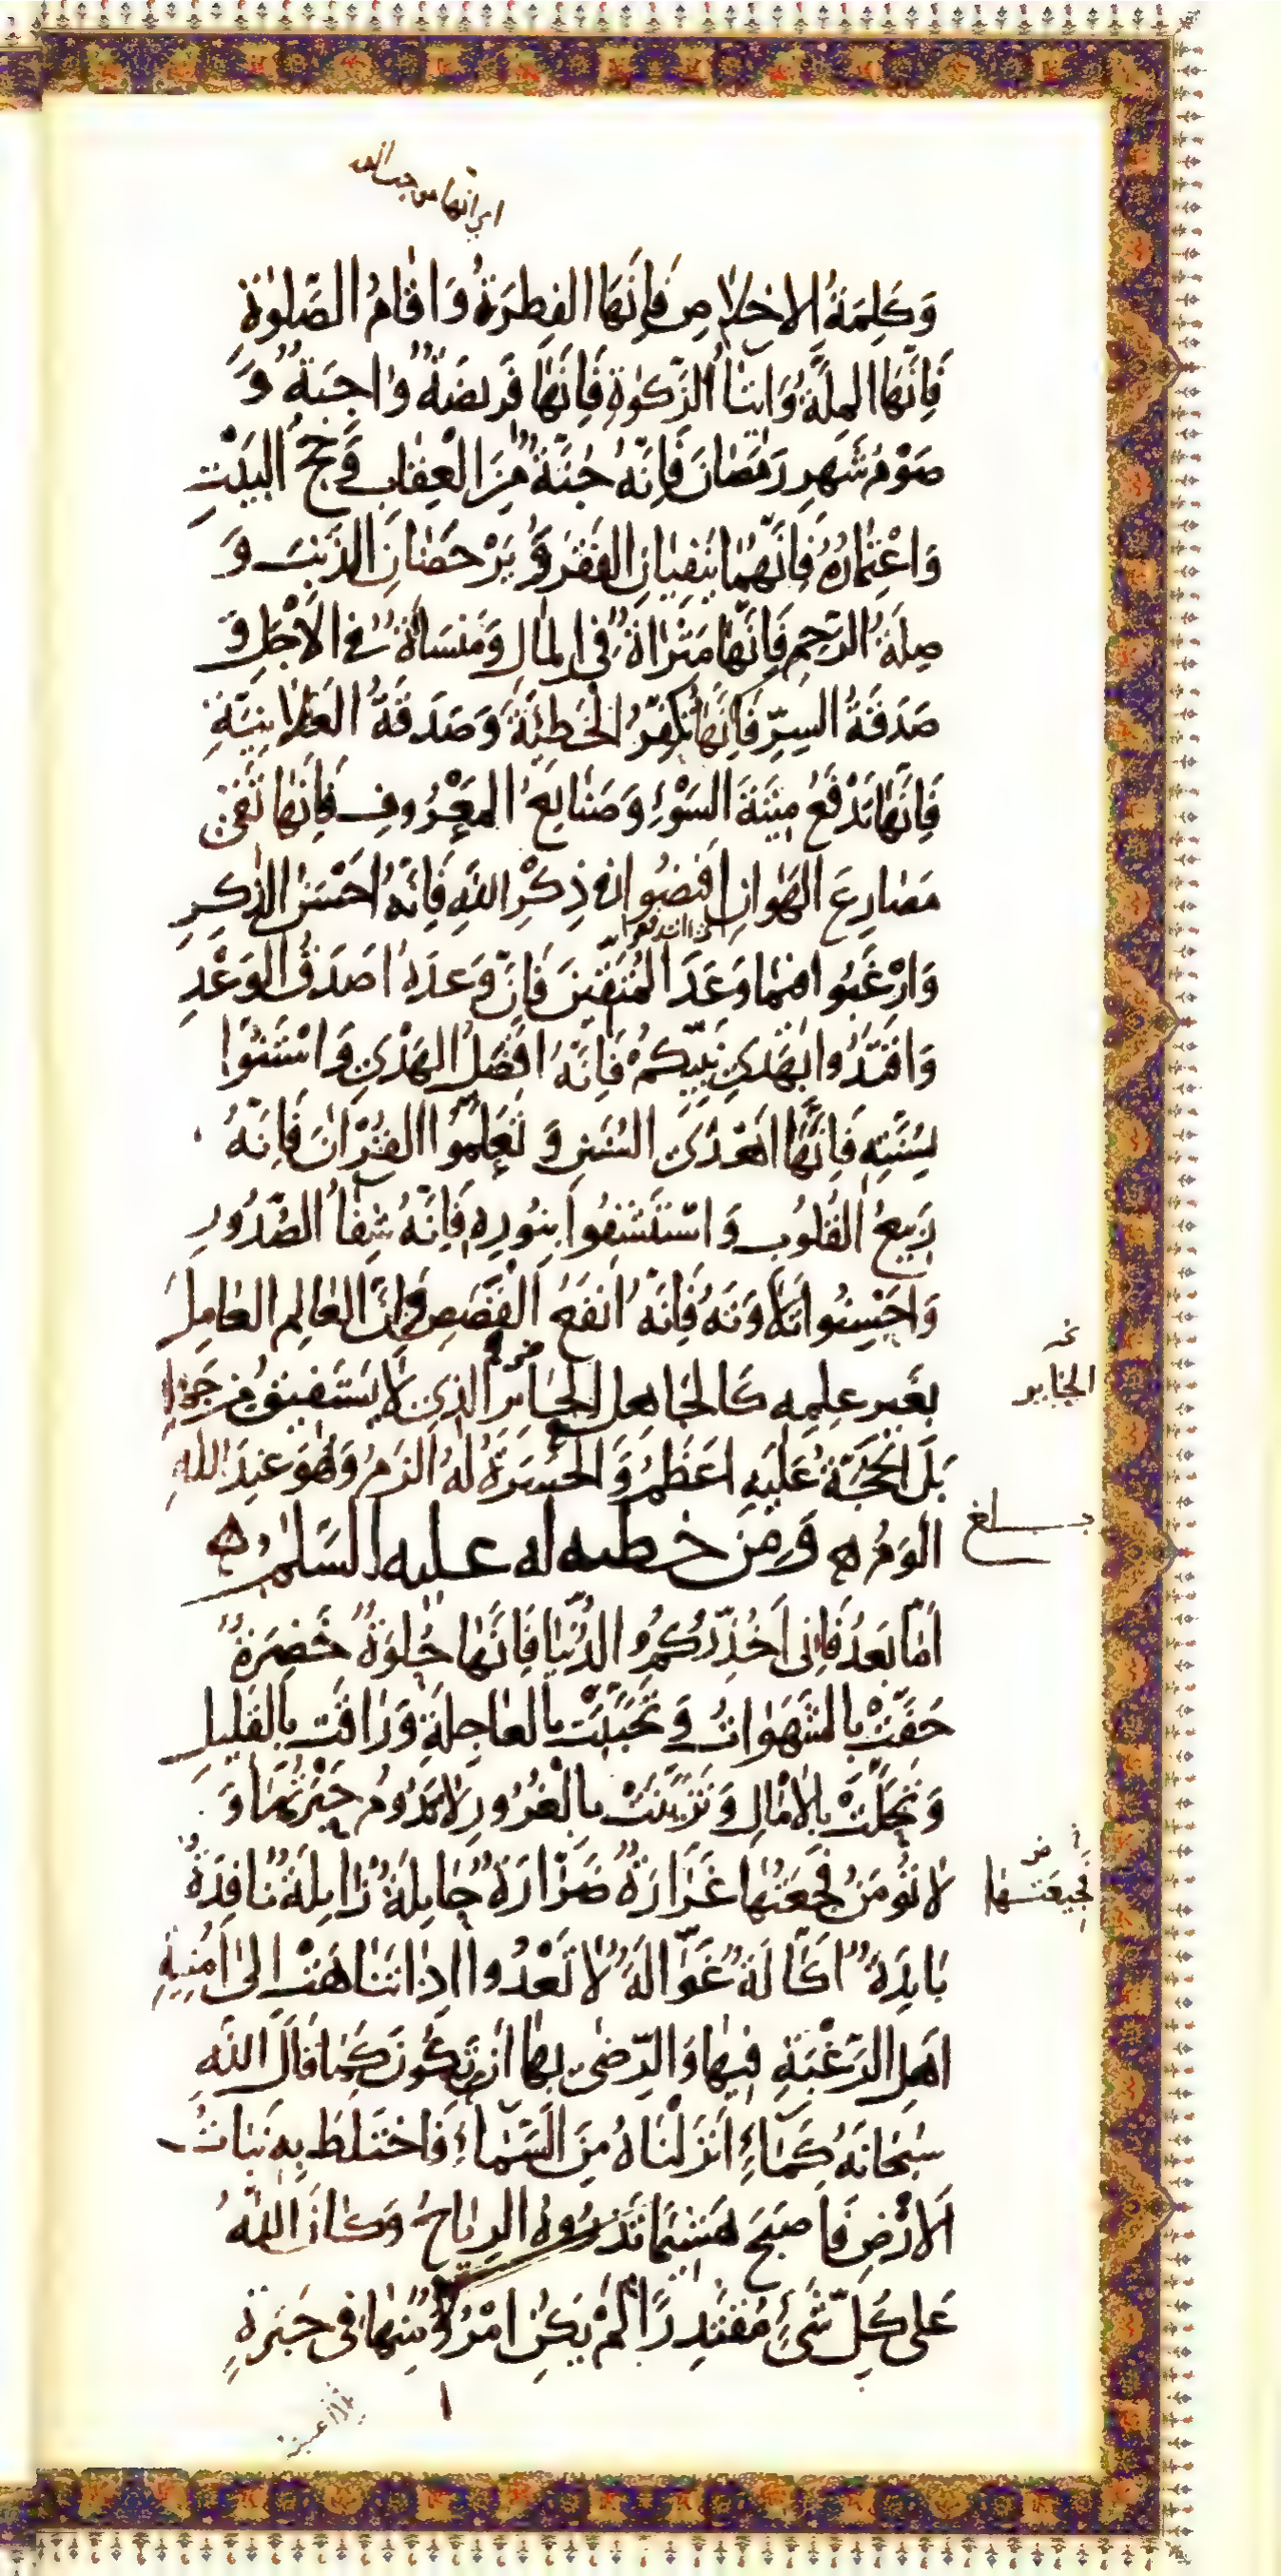 اي انها من جبـ الله
وَكَلِمَةُ الاِخلاصِ فَاِنَّهَا الفِطرَةُ وَاقامُ الصَّلوٰةِ
فَاِنَّهَا المِلَّةُ وَايتاۤءُ الزَّكوٰةِ فَاِنَّهَا فَريضَةٌ وٰاجِبَةٌ وَ
صَوْمُ شَهرِ رَمَضانَ فَاِنَّهُ جُنَّةٌ مِنَ الْعِقابِ وَحَجُّ البَيْتِ
وَاعْتِمٰارُهُ فَاِنَّهُمٰا يَنفِيانِ الفَقرَ وَ يَرْحَضٰانِ الذَّنبَ وَ
صِلَةُ الرَّحِمِ فَاِنَّهٰا مَثْرٰاةٌ فِي المٰالِ وَمَنسَاَةٌ في الاَجَلِ وَ
صَدَقَةُ السِرِّ فَاِنَّهٰا تُكَفِّرُ الخَطِيئَةَ وَصَدَقَةُ العَلانِيَةِ
فَاِنَّهٰا تَدْفَعُ مِيتَةَ السَوْءِ وَصَنٰايِعُ المَعْرُوفِ فَاِنَّهٰا تَقى
مَصٰارِعَ الهَوٰانِ افيضُوا في ذِكْرِ اللهِ فَاِنَّهُ اَحْسَنُ الذِكرِ
اى اندفعوا
وَارْغَبُوا فيمٰا وَعَدَ المُتَّقينَ فَاِنَّ وَعدَهُ اصَدَقُ الوَعْدِ
وَاقتَدُوا بِهَديِ نَبِيِّكُمْ فَاِنَّهُ افضَلُ الهَدْيِ وَاسْتَنُّوا
بِسُنَّتِهِ فَاِنَّهٰا اهْدَى السُنَنِ وَ تَعَلَّمُوا القُرْانَ فَاِنَّهُ
رَبِيعُ القُلوُبِ وَاسْتَشفُوا بِنُورِهِ فَاِنَّهُ شِفآءُ الصُّدُورِ
وَاَحْسِنُوا تِلاوَتَهُ فَاِنَّهُ اَنفَعُ القَصَصِ فَاِنَّ العٰالِمَ العٰامِلَ
بِغَيرِ عِلمِهِ كَالجٰاهِلِ الحٰائرِ الَّذي لٰا يَستَفيقُ مِن جَهلِهِ
الجٰاير
بَلِ الحُجَّةُ عَلَيهِ اعَظَمُ وَ الحَسرَةُ لَهُ الَزَمُ وَهُوَ عِندَ اللهِ
الوَمُ ۞ وَمِن خطبه له عليه السَلٰم ۞
بلغ
اَمّا بَعدُ فَاِنى اُحَذِّرُكُمُ الدُّنيٰا فَاِنَّهٰا حُلوَةٌ خَضِرَةٌ
حَفَّتْ بِالشَهَوٰاتِ وَ تَحَبَّبَتْ بِالعٰاجِلَةِ وَرٰاقَت بِالقَليلِ
وَ تَحَلَّتْ بِالاٰمٰالِ وَ تَزَيَّنَتْ بِالْغُرُورِ لاٰتَدُومُ حَبْرَتُهٰا وَ
لا تُؤمَنُ فَجْعَتُهٰا غَرّٰارَةٌ ضَرّٰارَةٌ حٰايِلَةٌ زٰايِلَةٌ نٰافِدَةٌ
فَجيعَتـهٰا
بٰايِدَةٌ اَكّٰالَةٌ غَوّٰالَةٌ لاٰ تَعْدُوا اِذٰا تَنٰاهَتْ اِلىٰ اُمنِيَةِ
اهَلِ الرَّغْبَةِ فيهٰا وَالرِّضىٰ بِهٰا اَن تَكُونَ كَمٰا قٰالَ اللهُ
سُبحٰانَهُ كَمٰاءٍ اَنْزَلنٰاهُ مِنَ السَّمٰاءِ فَاختَلَطَ بِهِ نَبٰاتُ
الاَرْضِ فَاَصبَحَ هَشيمًا تَذرُوهُ الرِيٰاحُ وَكٰانَ اللهُ
عَلى كُلِّ شَىْءٍ مُقتَدِرًا لَمْ يَكُنِ امْرُؤٌ مِنهٰا فى حَبرَةٍ